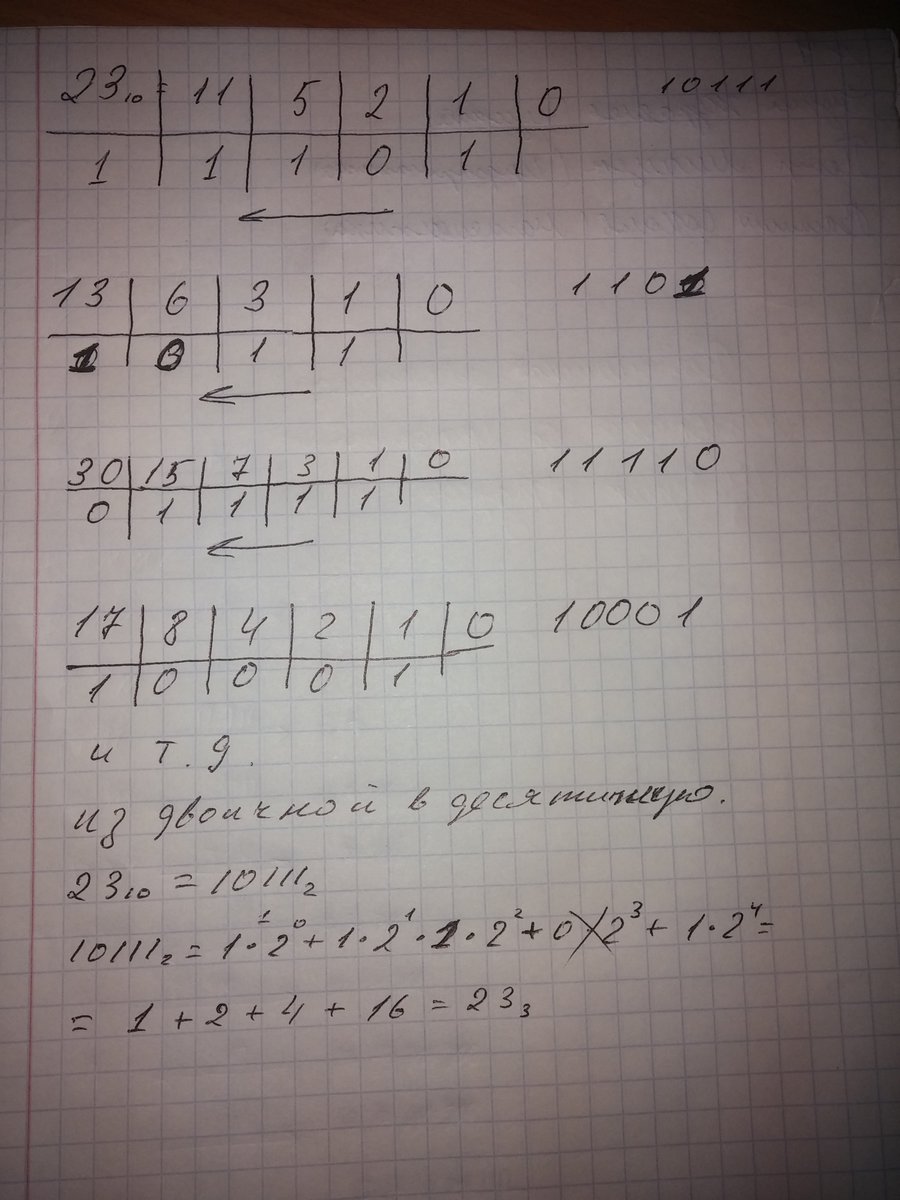 23₁₀= 11 5 2 1 0 10111
1 1 1 0 1
13 6 3 1 0 1101
1 0 1 1
30 15 7 3 1 0 11110
0 1 1 1 1
17 8 4 2 1 0 10001
1 0 0 0 1
и т.д.
из двоичной в десятичную.
23₁₀ = 10111₂
10111₂ = 1·2⁰ + 1·2¹ · 1·2² + 0·2³ + 1·2⁴ =
= 1 + 2 + 4 + 16 = 23₃